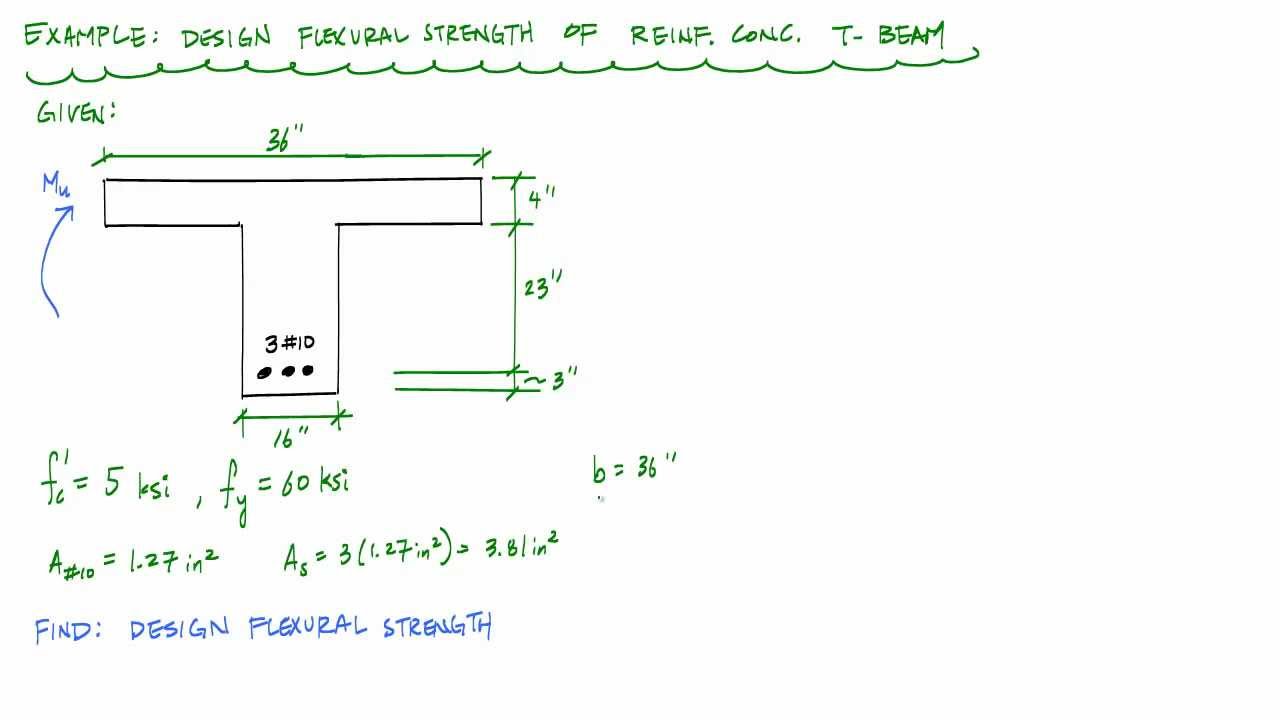 EXAMPLE: DESIGN FLEXURAL STRENGTH OF REINF. CONC. T-BEAM
GIVEN:
36"
Mu
4"
23"
3#10
~3"
16"
f'c = 5 ksi, fy = 60 ksi
b = 36"
A#10 = 1.27 in² As = 3(1.27 in²) = 3.81 in²
FIND: DESIGN FLEXURAL STRENGTH